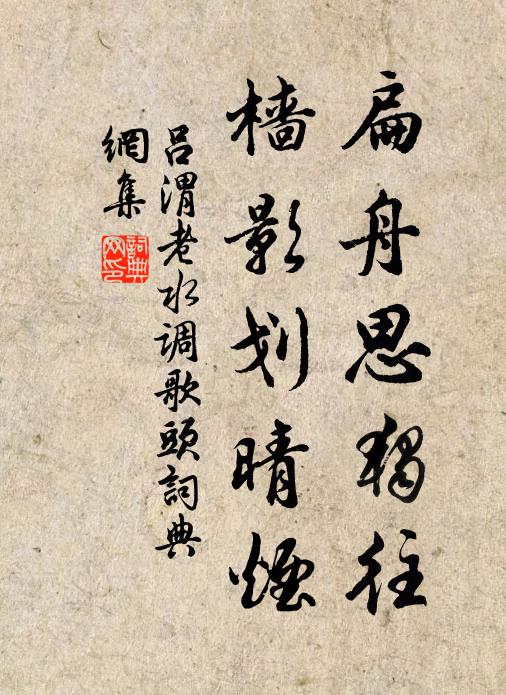 扁舟思獨往
檣影划晴煙
吕渭老水调歌頭詞典
網集
詞典
网印